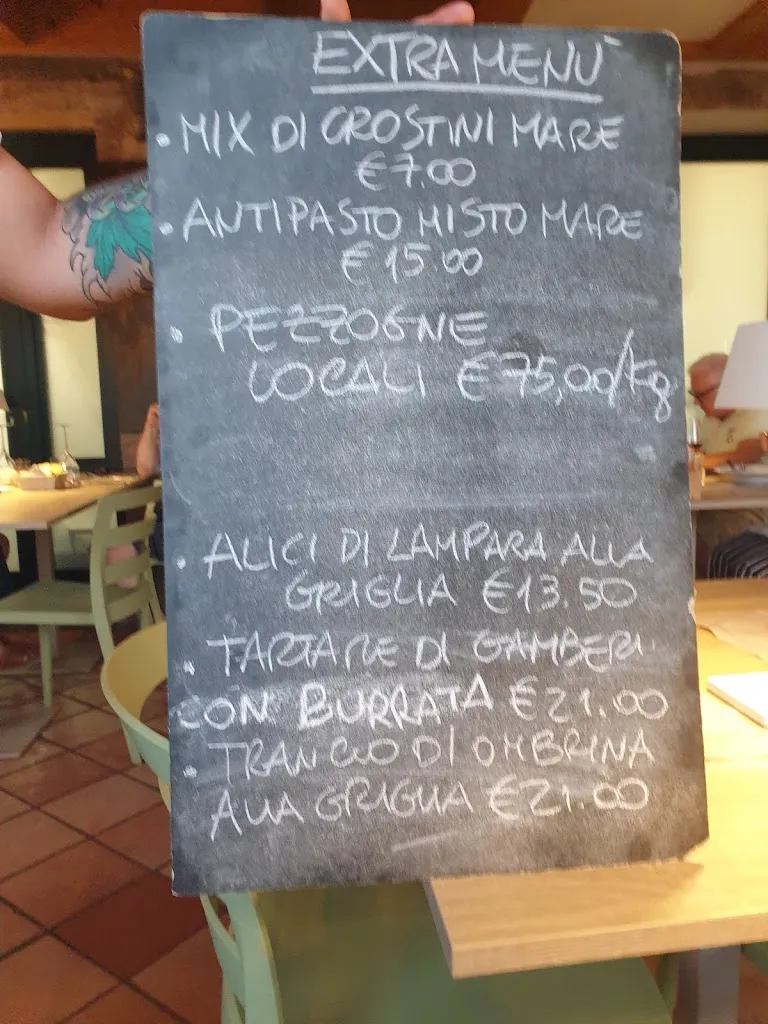 EXTRA MENÙ
• MIX DI CROSTINI MARE
€7.00
• ANTIPASTO MISTO MARE
€15.00
• PEZZOGNE
LOCALI €75,00/Kg
• ALICI DI LAMPARA ALLA
GRIGLIA €13.50
• TARTARE DI GAMBERI
CON BURRATA €21.00
• TRANCIO DI OMBRINA
ALLA GRIGLIA €21.00